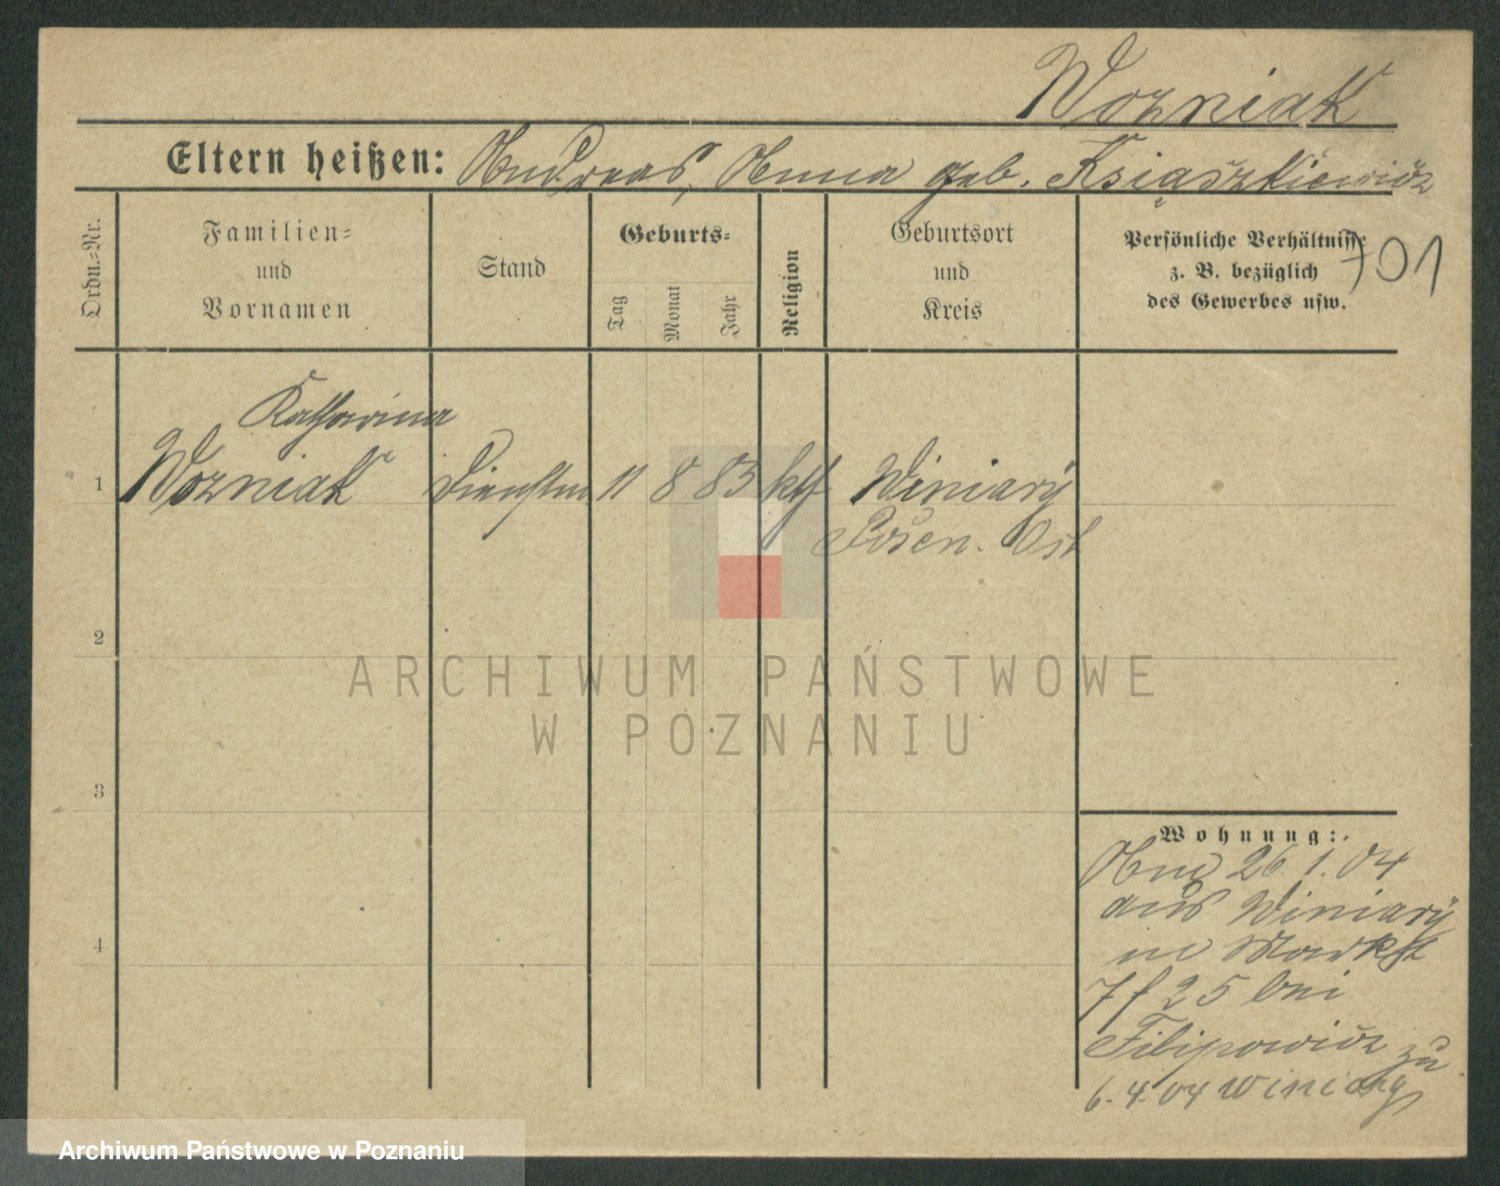 Wozniak
Eltern heißen: Andreas, Anna geb. Książkiewicz
Ordn.-Nr.
Familien-
und
Vornamen
Stand
Geburts-
Tag
Monat
Jahr
Religion
Geburtsort
und
Kreis
Persönliche Verhältnisse
z. B. bezüglich
des Gewerbes usw.
701
Katharina
1 Wozniak Dienstm. 11 8 83 kth Winiary
Posen. Ost
2
3
4
Wohnung:
Ang 26.1.04
aus Winiary
in Markst
7 f 25 bei
Filipowicz zu
6.4.04 Winiary
ARCHIWUM PAŃSTWOWE
W POZNANIU
Archiwum Państwowe w Poznaniu